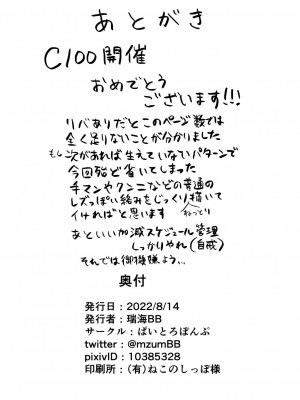 あとがき
C100開催
おめでとう
ございます!!!
リバありだとこのページ数では
全く足りないことが分かりました
もし次があれば生えていないパターンで
今回殆ど省いてしまった
手マンやクンニなどの普通の
レズっぽい絡みをじっくり描いて
ねっとり
イければと思います
あといい加減スケジュール管理
しっかりやれ(自戒)
それでは御機嫌よう、、
奥付
発行日:2022/8/14
発行者:瑞海BB
サークル:ぱいとろぽんぷ
twitter:@mzumBB
pixivID:10385328
印刷所:(有)ねこのしっぽ様